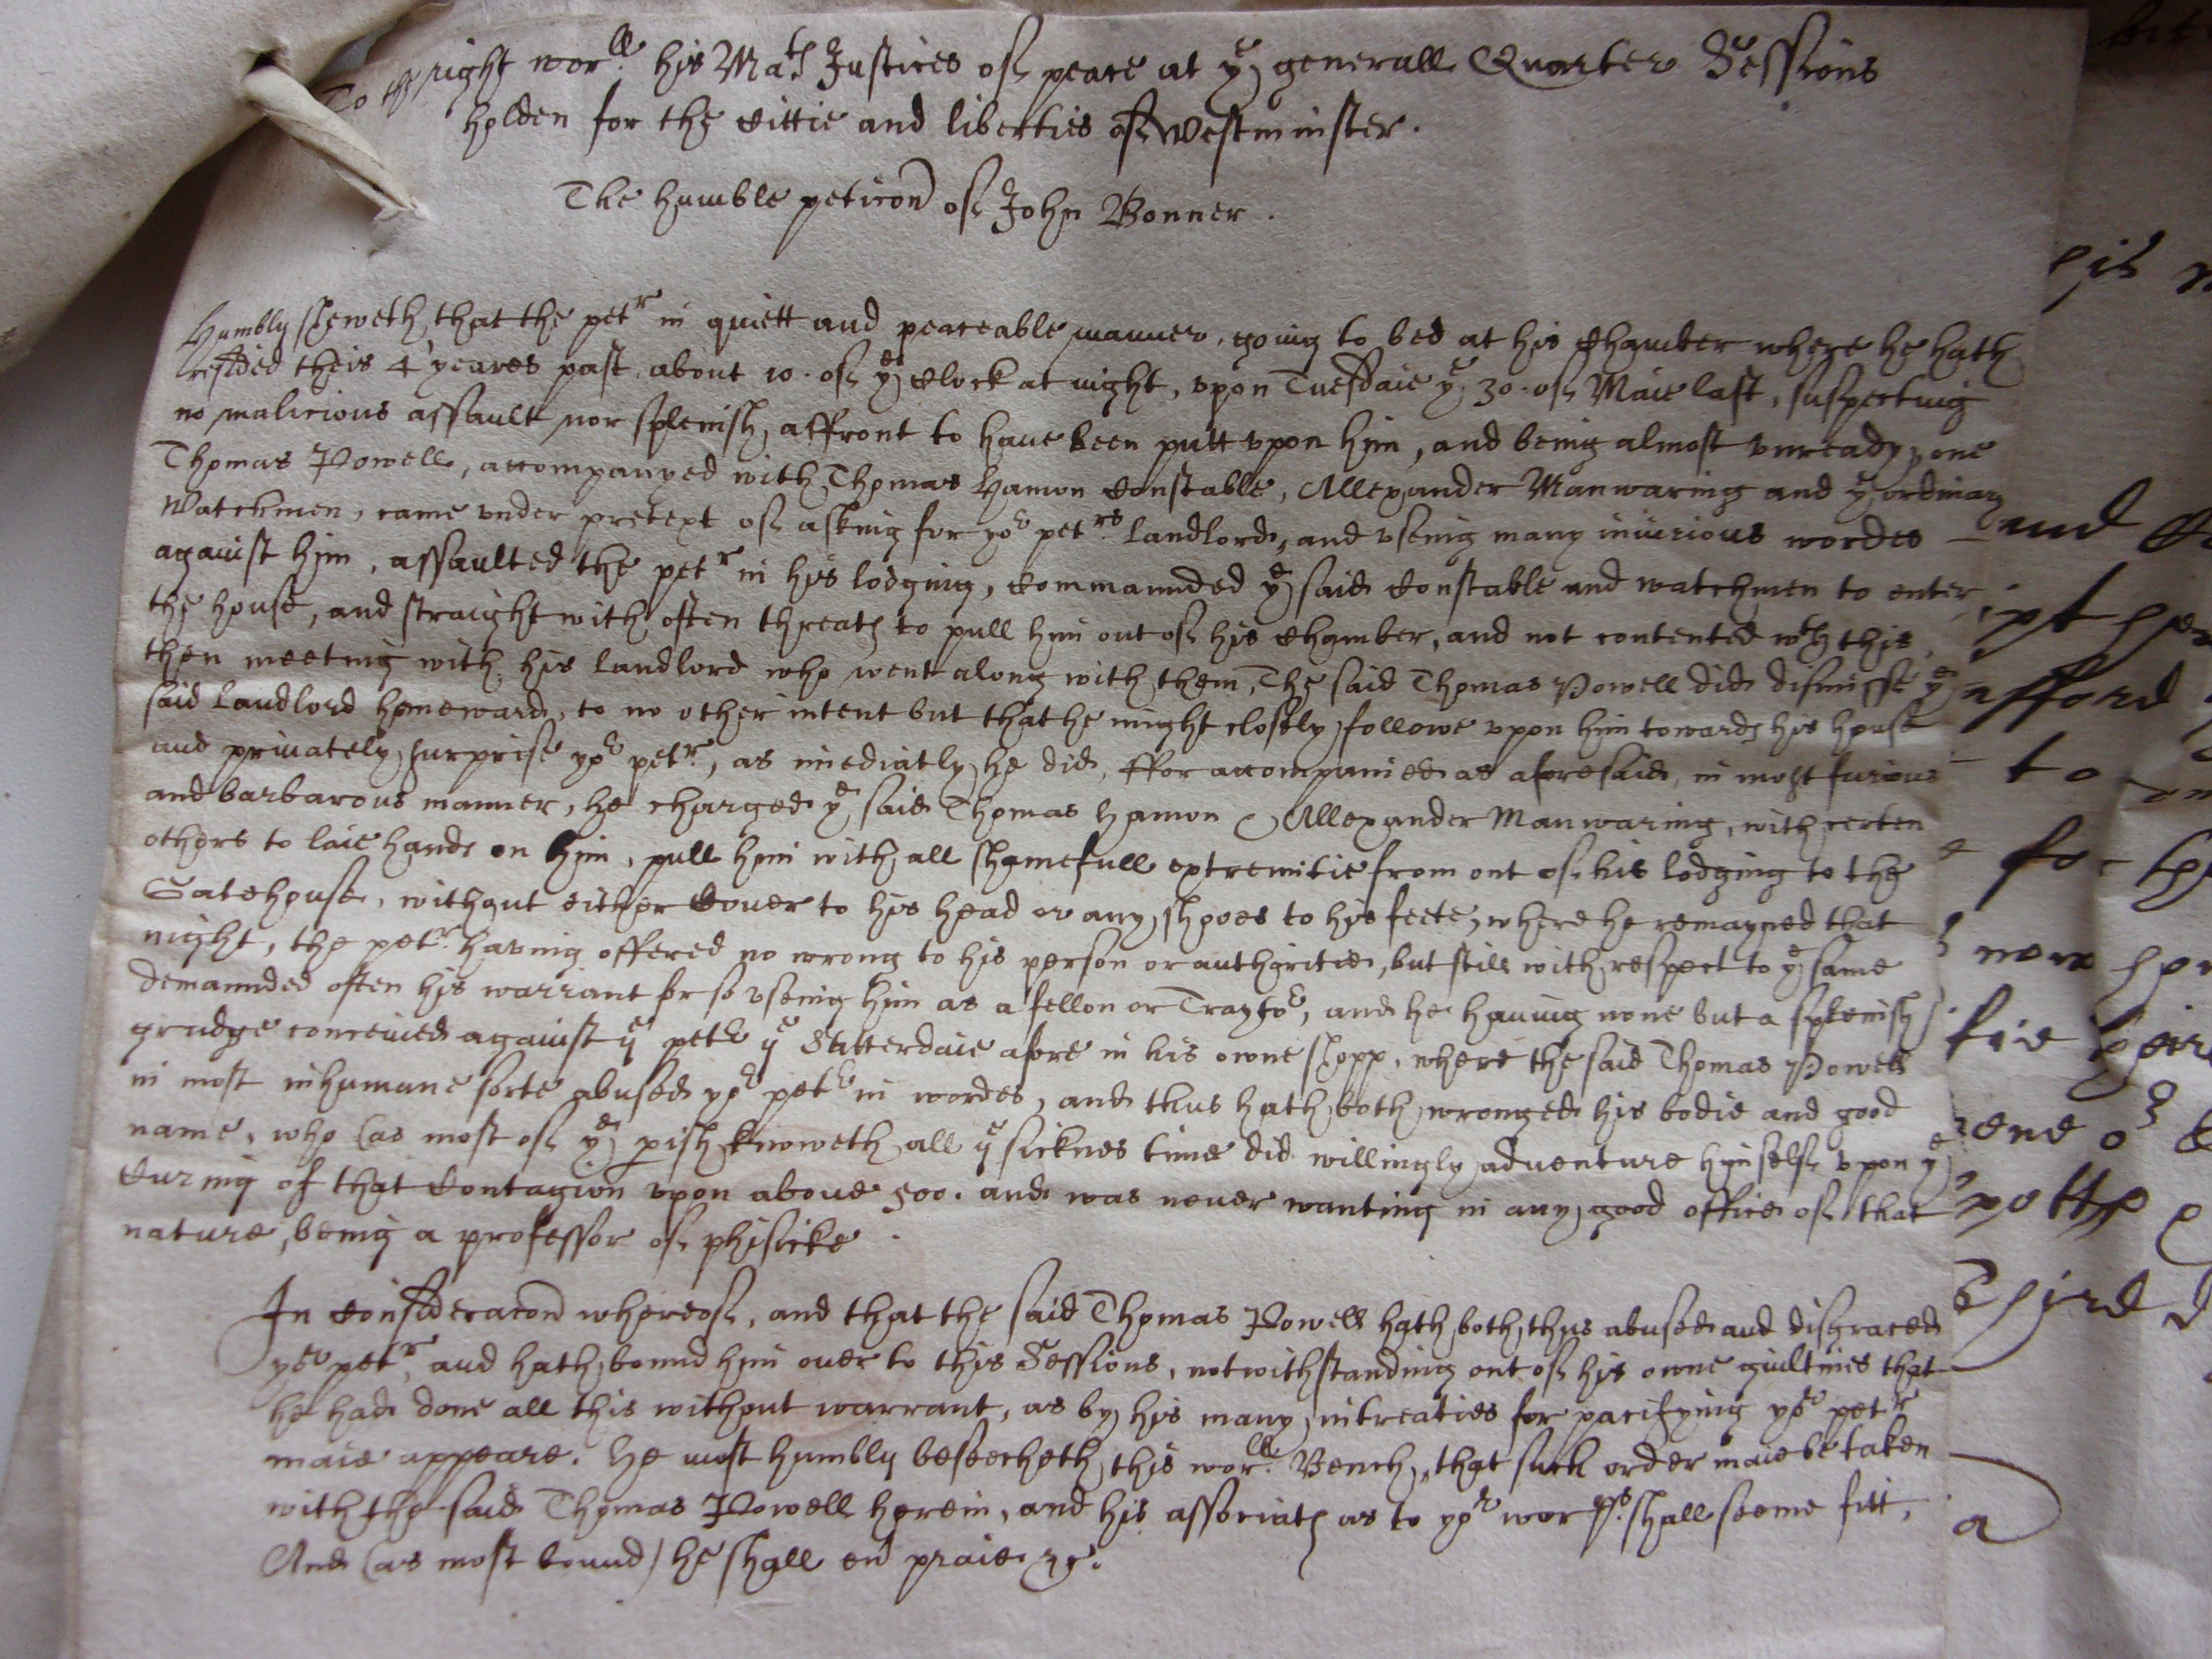 To the right wor:ll his Mats Justices of peace at ye generall Quarter Sessions
holden for the Cittie and liberties of Westminster.
The humble peticon of John Bonner.
Humbly sheweth, that the petr in quiett and peaceable manner, going to bed at his Chamber where he hath
resided theis 4 yeares past, about 10. of ye Clock at night, vpon Tuesdaie ye 30. of Maie last, suspecting
no malicious assault nor splenish affront to haue been putt vpon him, and being almost vnready, one
Thomas Powell, accompanyed with Thomas Hamon Constable, Allexander Manwaring and ye ordinary
Watchmen, came vnder pretext of asking for yor petrs: landlord, and vseing many iniurious wordes
against him, assaulted the petr in his lodging, Commaunded ye said Constable and watchmen to enter
the house, and straight with often threats to pull him out of his Chamber, and not contented wth this,
then meeting with his landlord who went along with them, The said Thomas Powell did dismisse ye
said Landlord homeward, to no other intent but that he might closely followe vpon him towards his house
and priuately surprise yor petr:, as imediatly he did, ffor accompanied as aforesaid, in most furious
and barbarous manner, he charged ye said Thomas Hamon Allexander Manwaring, with certen
others to laie hands on him, pull him with all shamefull extremitie from out of his lodging to the
Gatehouse, without either Couer to his head or any shooes to his feete, where he remayned that
night, the petr: having offered no wrong to his person or authoritie, but still with respect to ye same
demaunded often his warrant for so vseing him as a fellon or Traytor, and he hauing none but a splenish
grudge conceiued against ye petr ye Satterdaie afore in his owne shopp, where the said Thomas Powell
in most inhumane sorte abused yor petr in wordes, and thus hath both wronged his bodie and good
name, who (as most of ye pish knoweth all ye sicknes time did willingly aduenture himself vpon ye
Curing of that Contagion vpon aboue 500. and was neuer wanting in any good office of that
nature, being a professor of phisicke.
In Consideracon whereof, and that the said Thomas Powell hath both thus abused and disgraced
yor petr, and hath bound him ouer to this Sessions, notwithstanding out of his owne guiltines that
he had done all this without warrant, as by his many intreaties for pacifying yor petr
maie appeare. He most humbly beseecheth this wor:ll Bench, that such order maie be taken
with the said Thomas Powell herein, and his associats as to yor worpps: shall seeme fitt,
And (as most bound) he shall eu praie &c.
and
afford
to
for
new
a